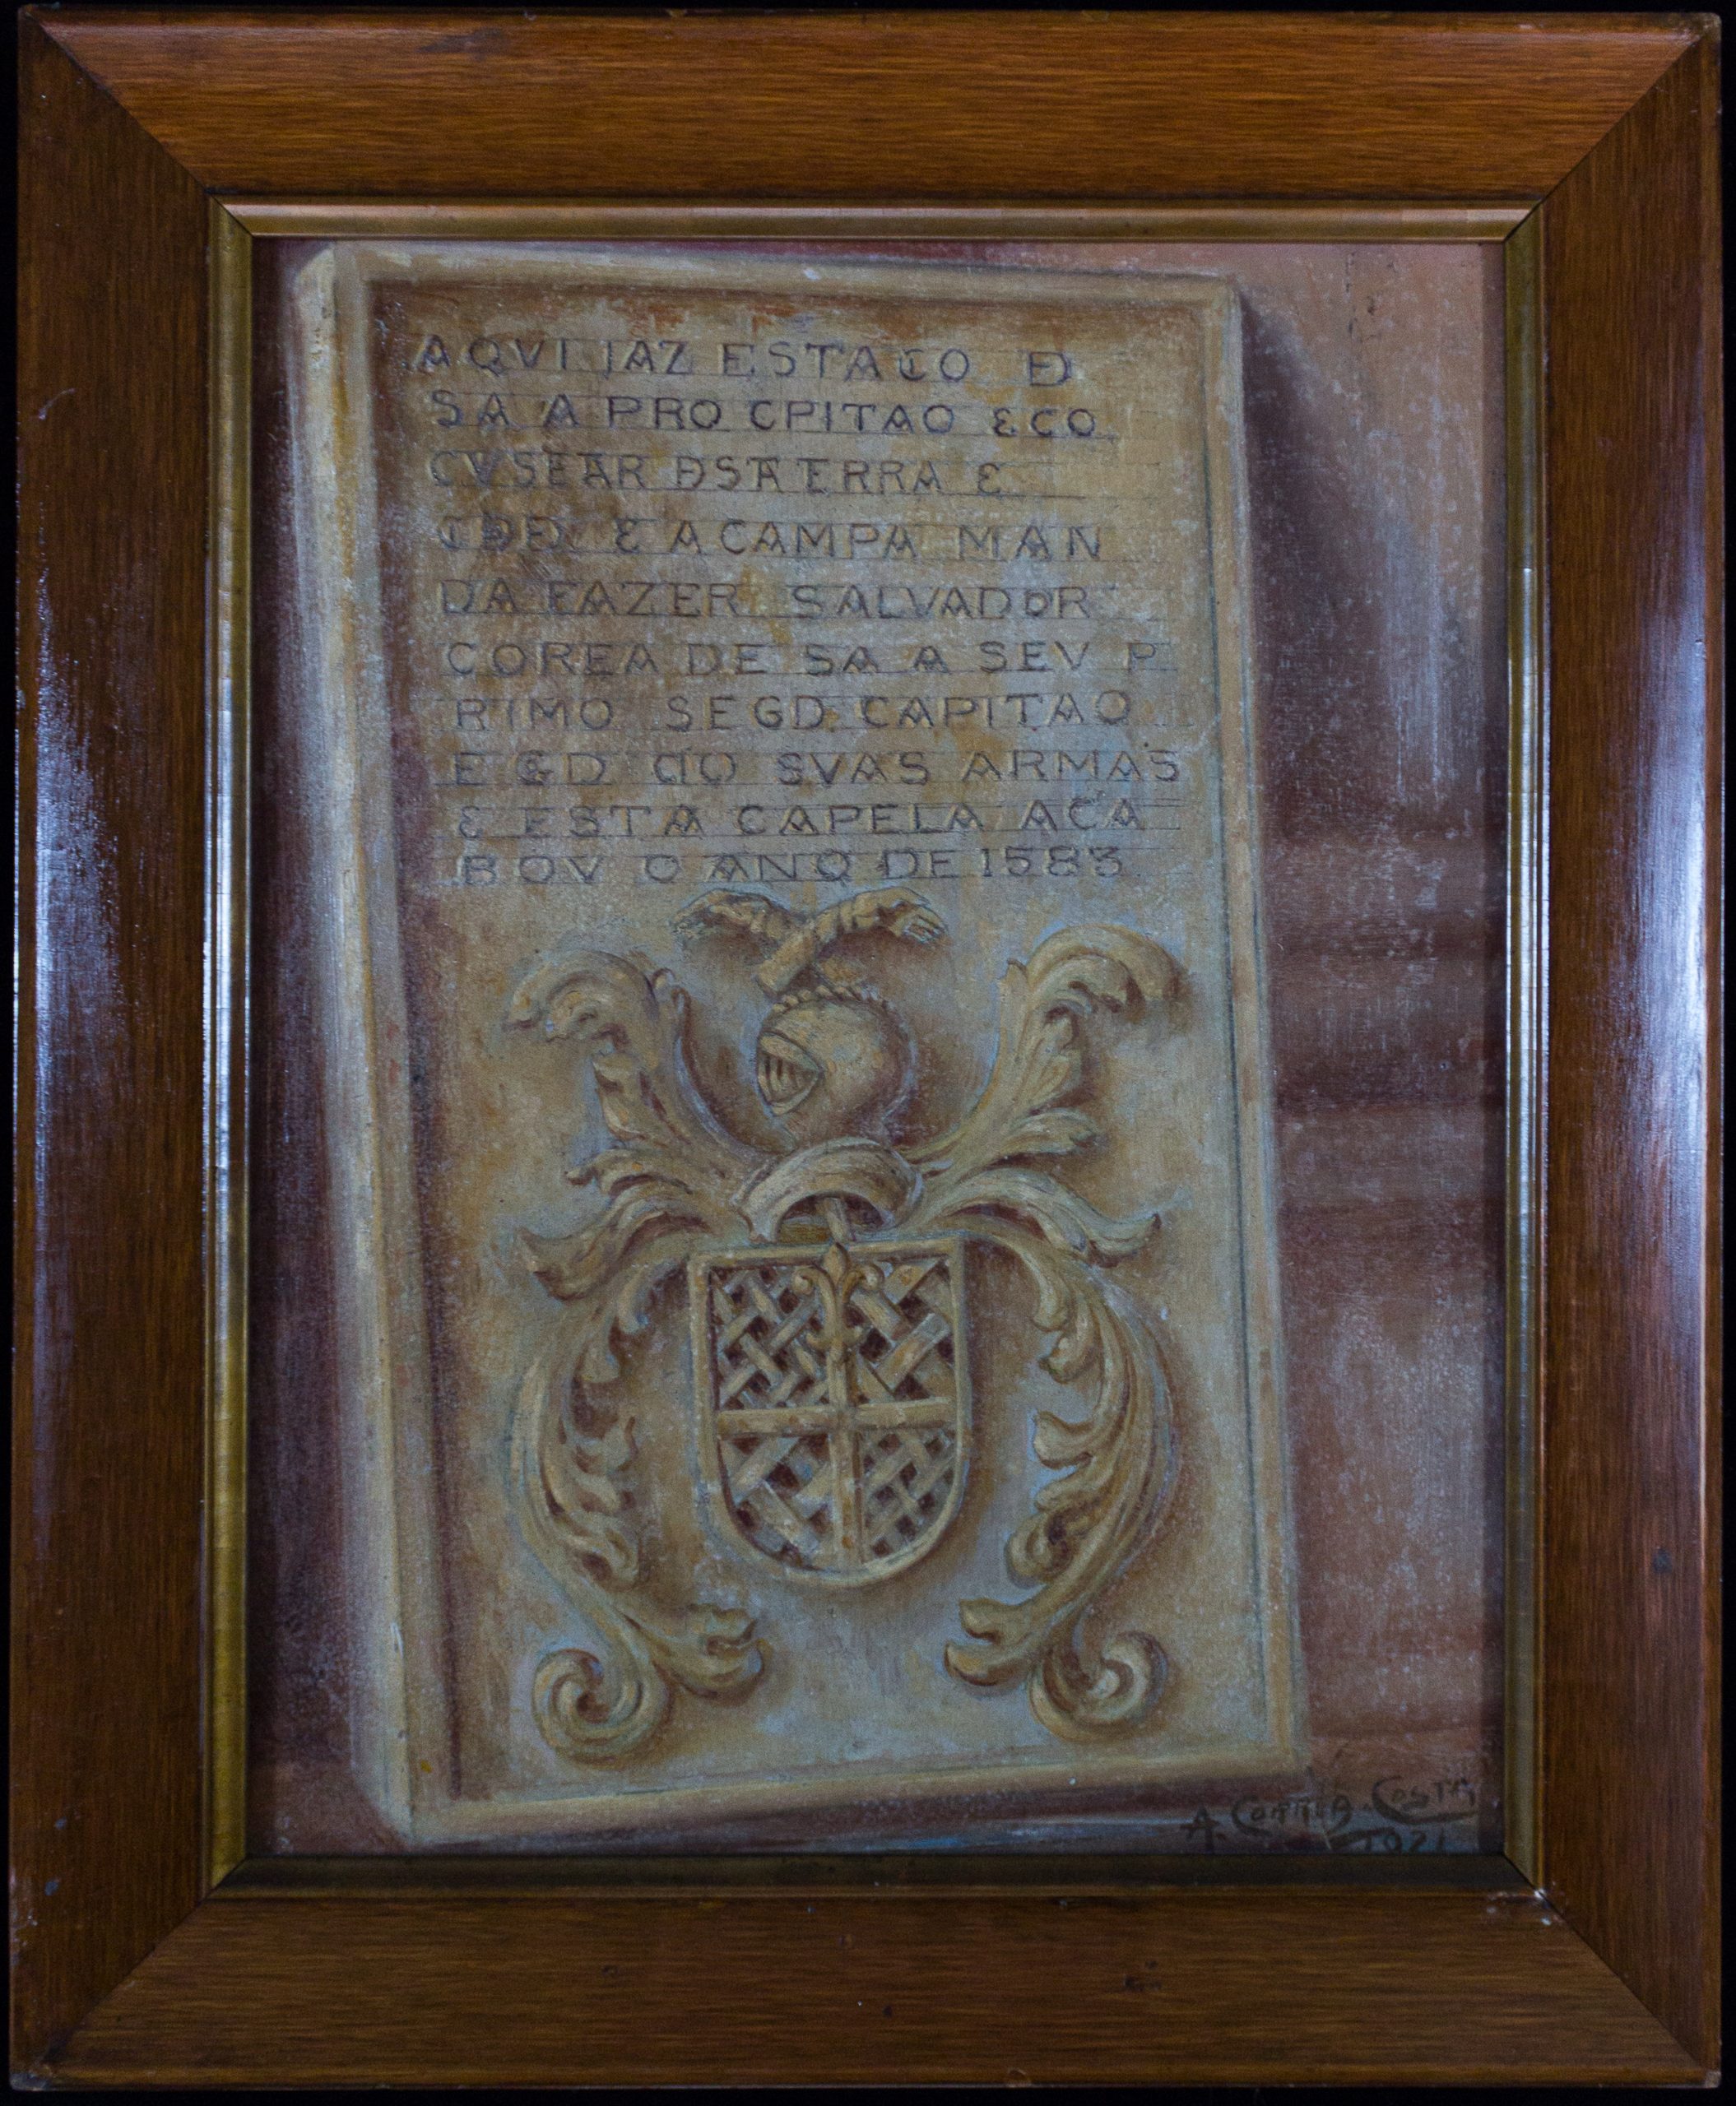 AQVI IAZ ESTAÇO Đ
SA A PRO CPITAO ƐCO
CVSEAR ĐSTA TERRA Ɛ
Ɛ A CAMPA MAN
DA FAZER SALVADOR
COREA DE SA A SEV P
RIMO SEGD CAPITAO
EGD CIO SVAS ARMAS
Ɛ ESTA CAPELA ACA
BOV O ANO DE 1583
A. CORREA COSTA